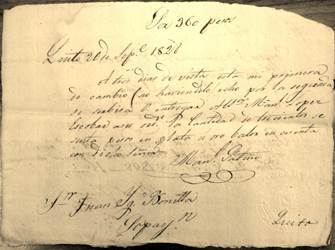 Son 360 pesos
Quito 20 de Sepe. 1826
A tres dias de vista esta mi primera
de cambio (no haviendolo echo por la segunda
se servira V. entregar al Sr. Man.
Escobar a su orn. la Cantidad de trecientos se
senta pesos en plata u oro balor en cuenta
con dicho Señor
Man. Patiño
Sr. Juan Bonilla
Popayn
Quito